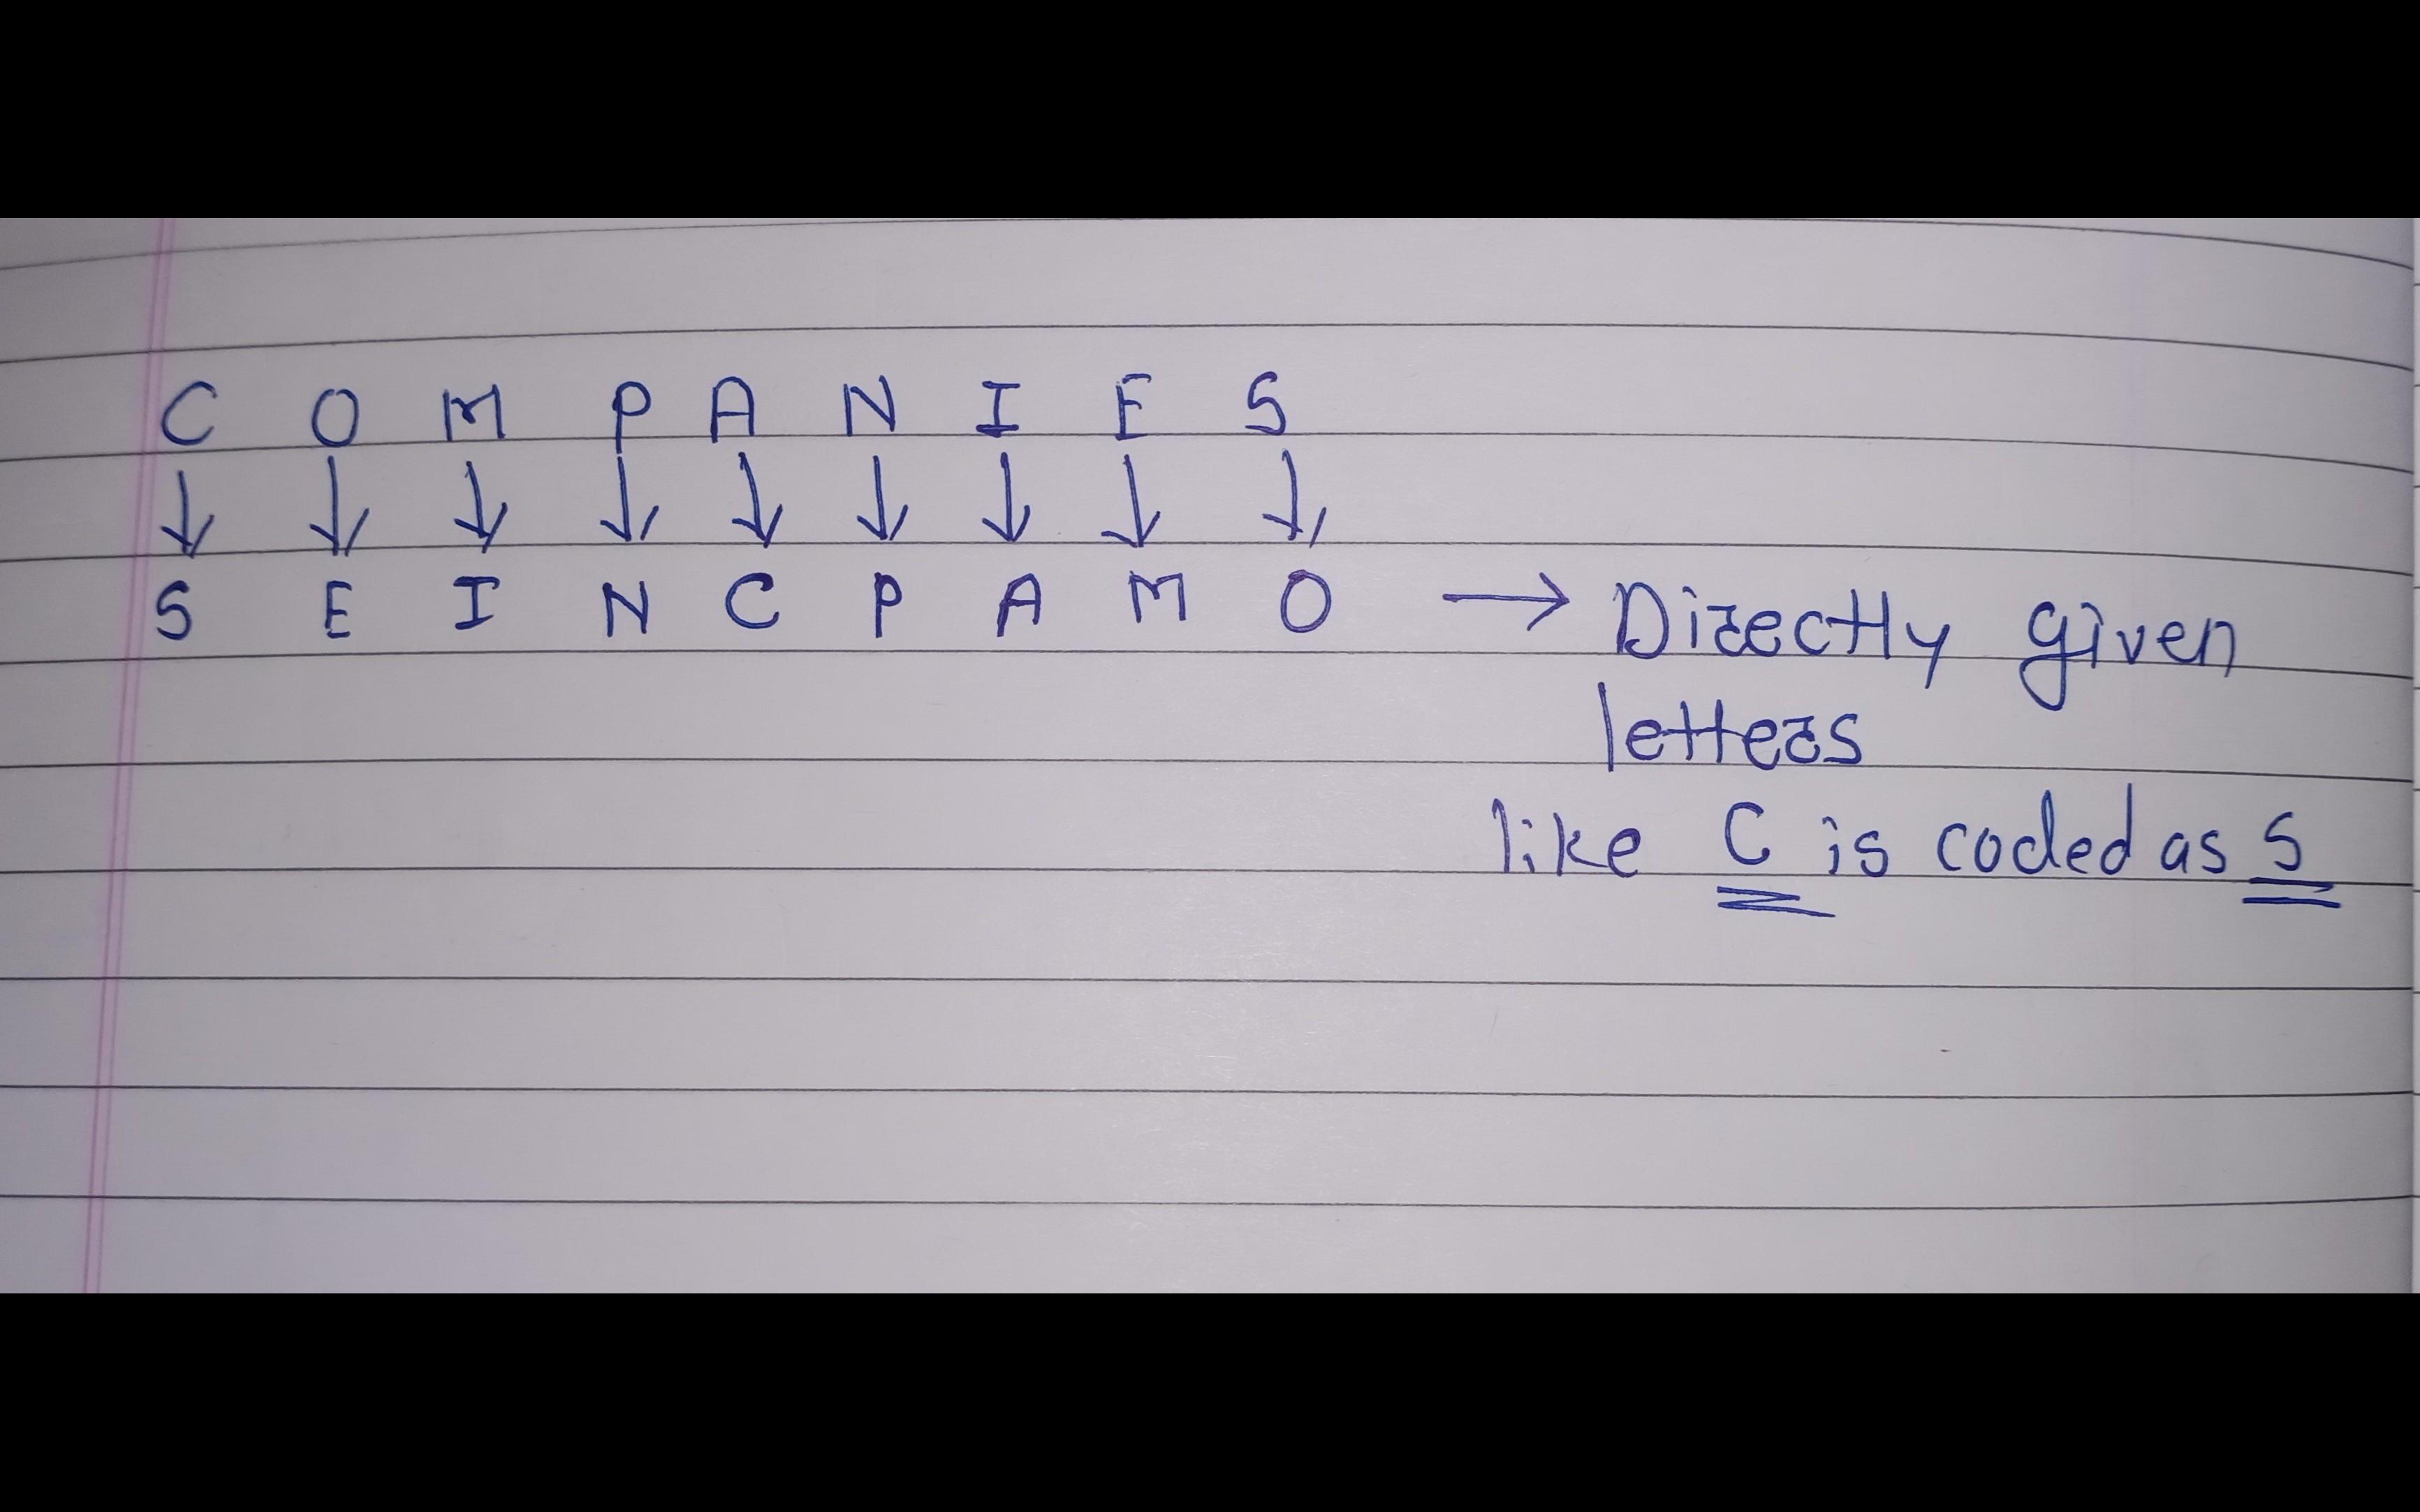 C O M P A N I E S
↓ ↓ ↓ ↓ ↓ ↓ ↓ ↓ ↓
S E I N C P A M O → Directly given
letters
like C is coded as S